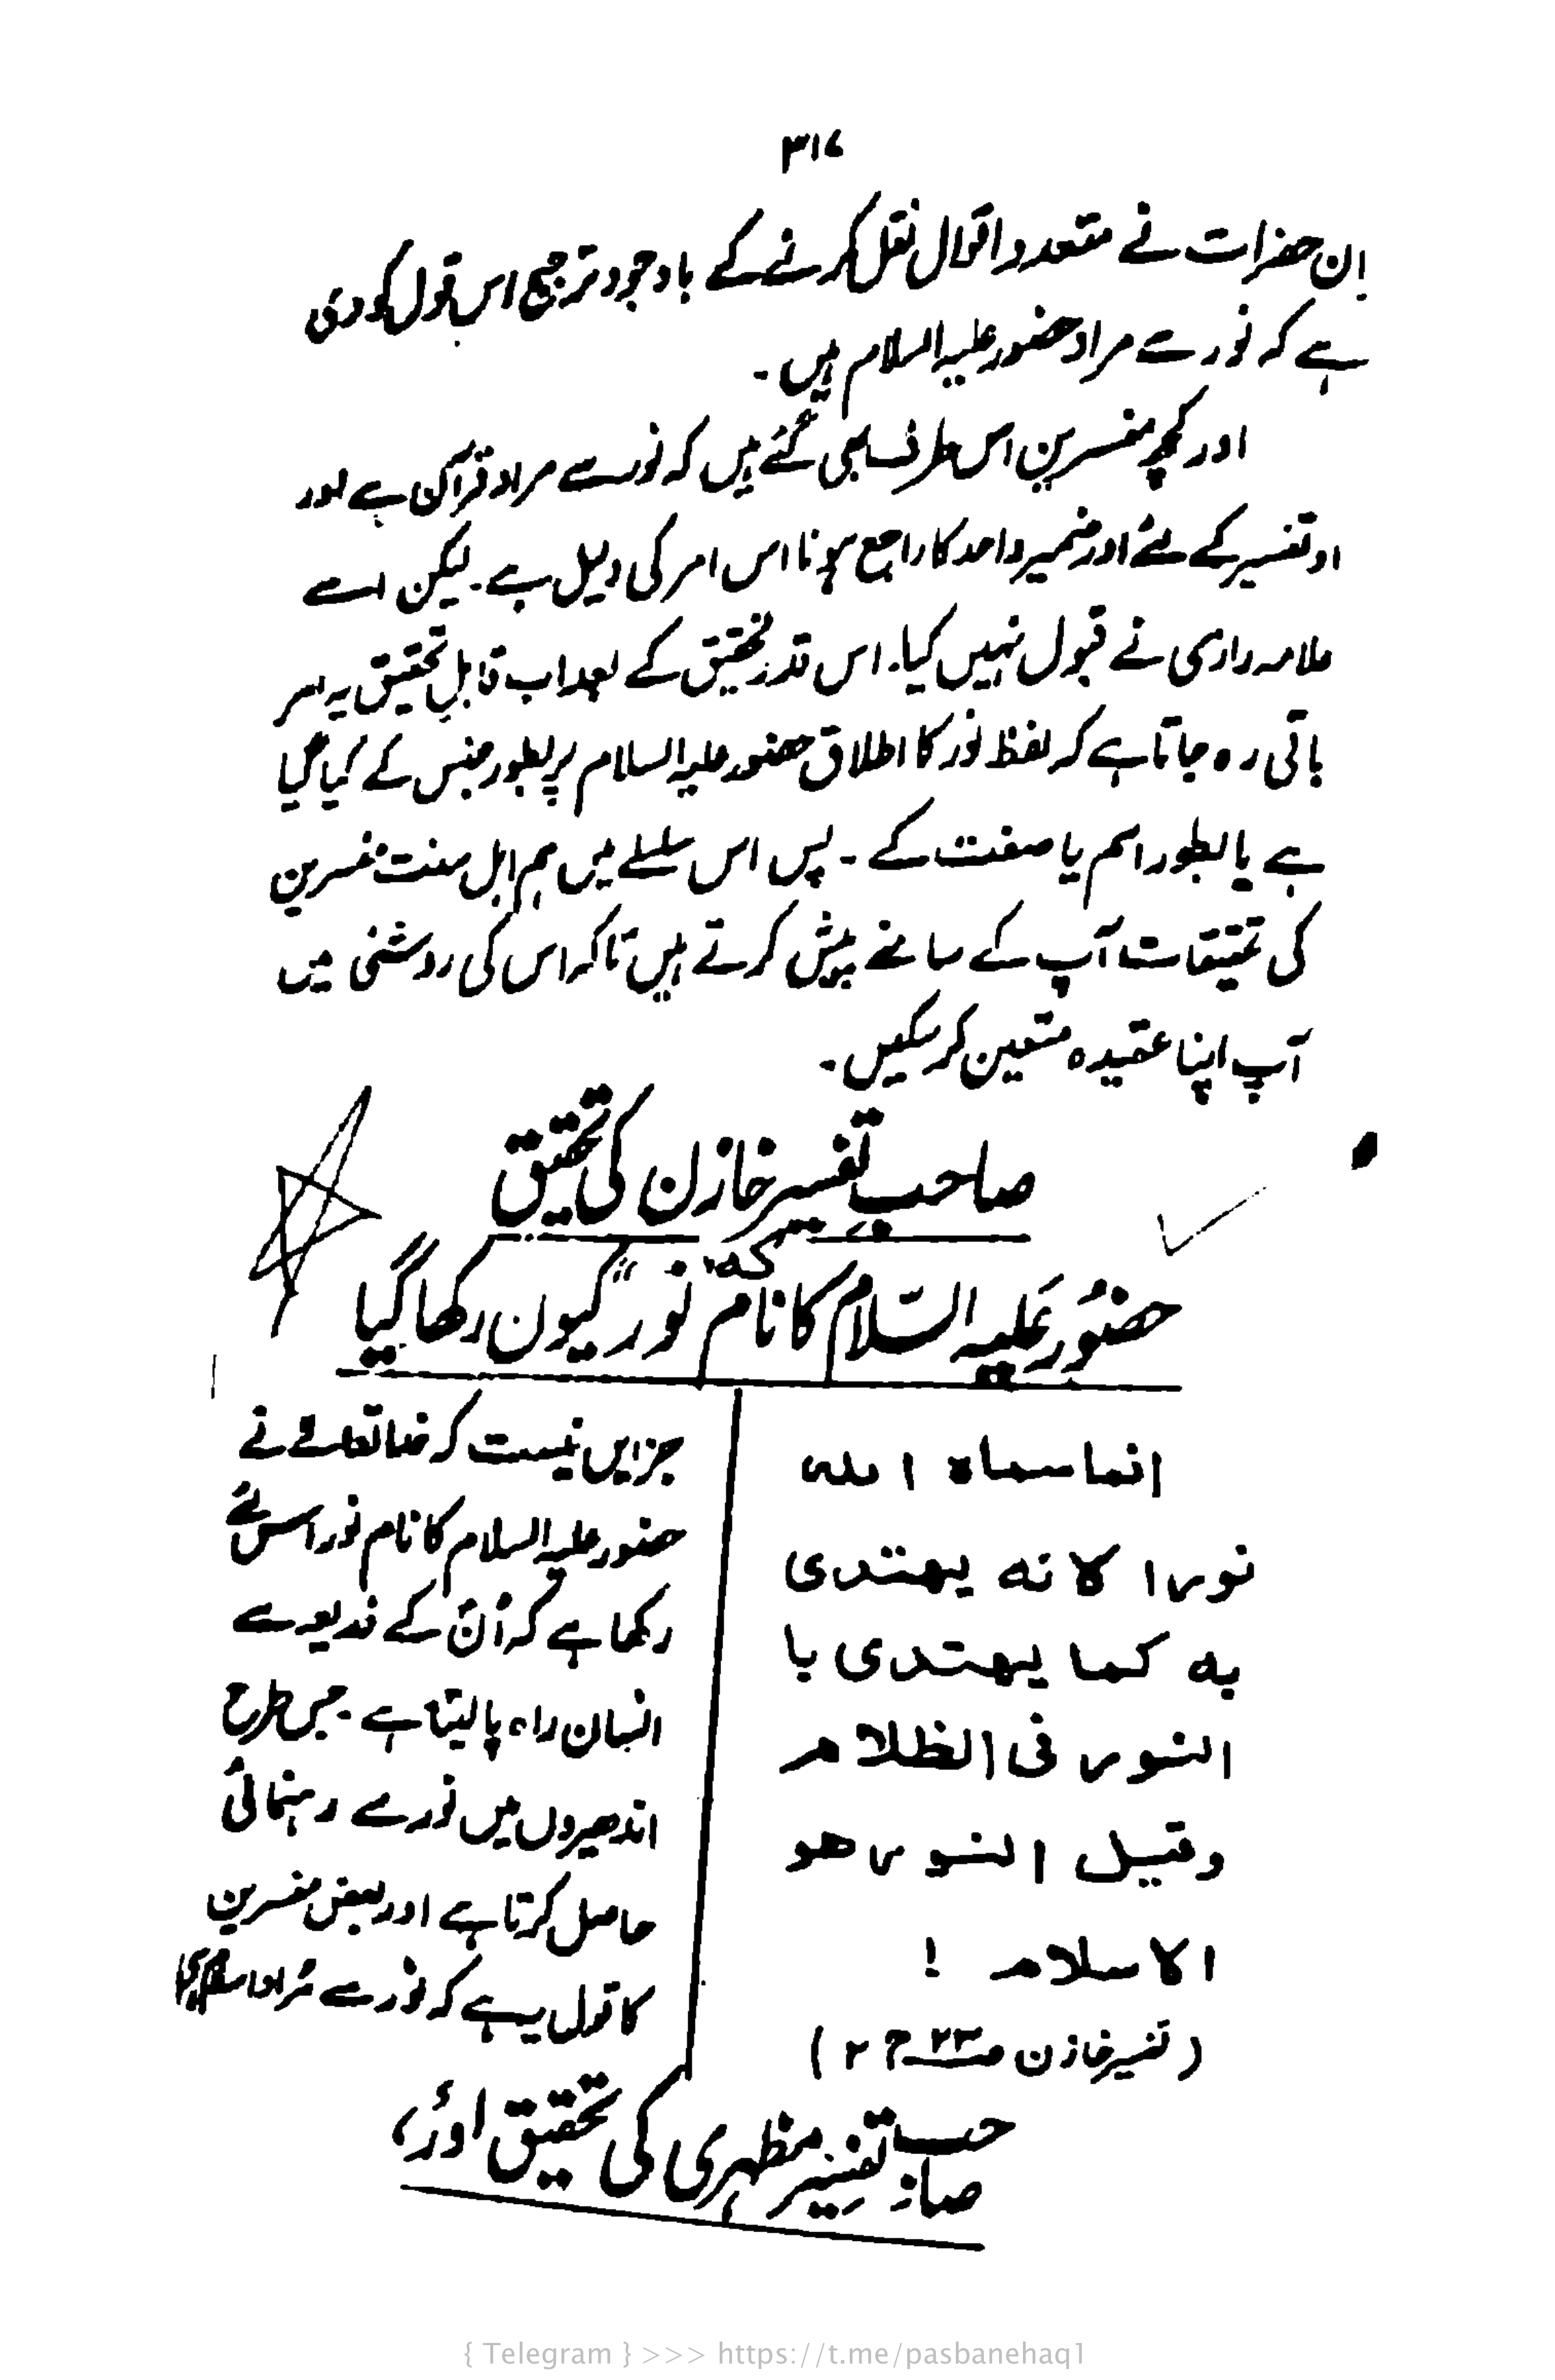 ۳۱۷
ان حضرات نے متعدد اقوال نقل کرنے کے باوجود ترجیح اس قول کو دی
ہے کہ نور سے مراد حضور علیہ السلام ہیں ۔
اور کچھ مفسرین اس طرف بھی گئے ہیں کہ نور سے مراد قرآن ہے اور
او تفسیر کے لئے اور ضمیر واحد کا راجع ہونا اس امر کی دلیل ہے ۔ لیکن اسے
علامہ رازی نے قبول نہیں کیا ۔ اس قدر تحقیق کے بعد اب قابلِ تحقیق یہ امر
باقی رہ جاتا ہے کہ لفظ نور کا اطلاق حضور علیہ السلام پر بطور جنس کے کیا گیا
ہے یا بطور اسم یا صفت کے ۔ پس اس سلسلے میں ہم اہل سنت مفسرین
کی تحقیقات آپ کے سامنے پیش کرتے ہیں تاکہ اس کی روشنی میں
آپ اپنا عقیدہ متعین کر سکیں ۔
صاحب تفسیر خازن کی تحقیق
کہ
حضور علیہ السلام کا نام نور" کیوں رکھا گیا
انما سماہ اللہ
نورا لانہ یھتدی
بہ کما یھتدی با
النور فی الظلام
وقیل النور ھو
الاسلام !
(تفسیر خازن ص۲۳ ج ۲)
جزایں نیست کہ خدا تعالےٰ نے
حضور علیہ السلام کا نام نور اس لئے
رکھا ہے کہ اُن کے ذریعہ سے
انسان راہ پا لیتا ہے ۔ جس طرح
اندھیروں میں نور سے رہنمائی
حاصل کرتا ہے اور بعض مفسرین
کا قول یہ ہے کہ نور سے مُراد اسلام ہے
صاحب تفسیر مظہری کی تحقیق اور،
{ Telegram } >>> https://t.me/pasbanehaq1